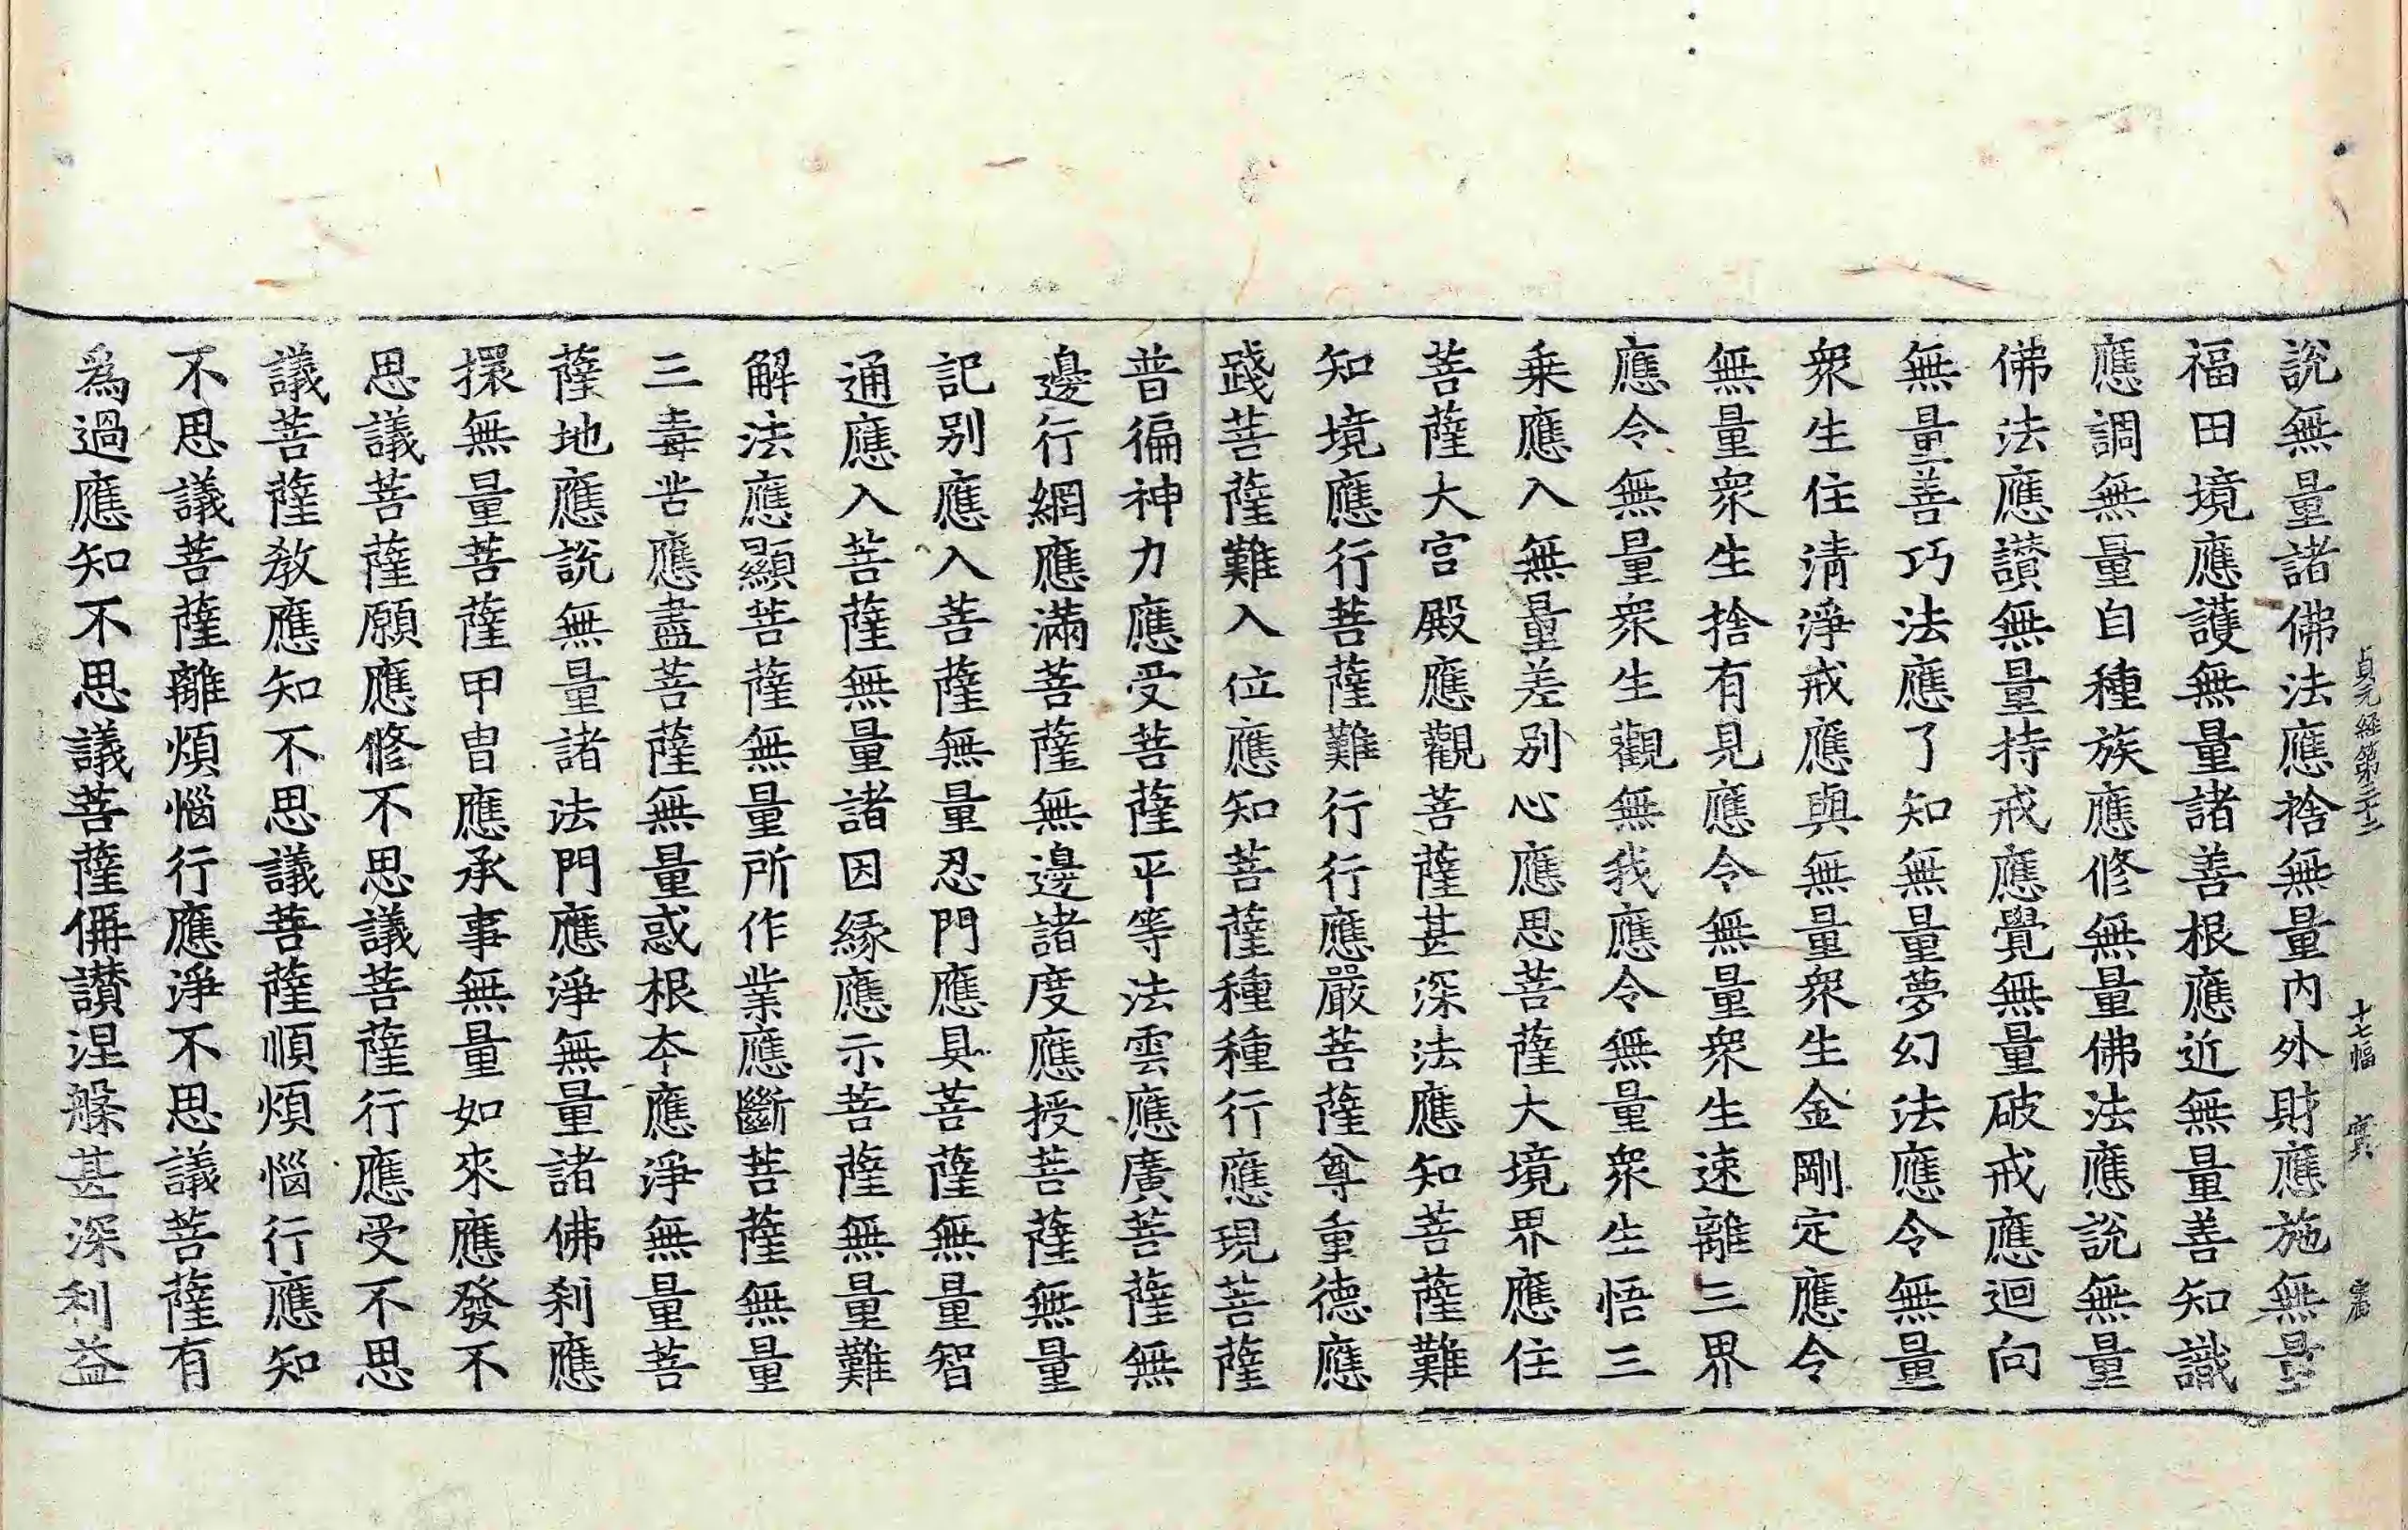 貞元経第三十二 十七幅
說無量諸佛法應捨無量内外財應施無量
福田境應護無量諸善根應近無量善知識
應調無量自種族應修無量佛法應說無量
佛法應讃無量持戒應覺無量破戒應迴向
無量善巧法應了知無量夢幻法應令無量
衆生住淸淨戒應與無量衆生金剛定應令
無量衆生捨有見應令無量衆生速離三界
應令無量衆生觀無我應令無量衆生悟三
乗應入無量差別心應思菩薩大境界應住
菩薩大宮殿應觀菩薩甚深法應知菩薩難
知境應行菩薩難行行應嚴菩薩尊重德應
踐菩薩難入位應知菩薩種種行應現菩薩
普徧神力應受菩薩平等法雲應廣菩薩無
邊行網應滿菩薩無邊諸度應授菩薩無量
記别應入菩薩無量忍門應具菩薩無量智
通應入菩薩無量諸因緣應示菩薩無量難
解法應顯菩薩無量所作業應斷菩薩無量
三毒苦應盡菩薩無量惑根夲應淨無量菩
薩地應說無量諸法門應淨無量諸佛刹應
擐無量菩薩甲胄應承事無量如來應發不
思議菩薩願應修不思議菩薩行應受不思
議菩薩敎應知不思議菩薩順煩惱行應知
不思議菩薩離煩惱行應淨不思議菩薩有
爲過應知不思議菩薩偁讃涅槃甚深利益